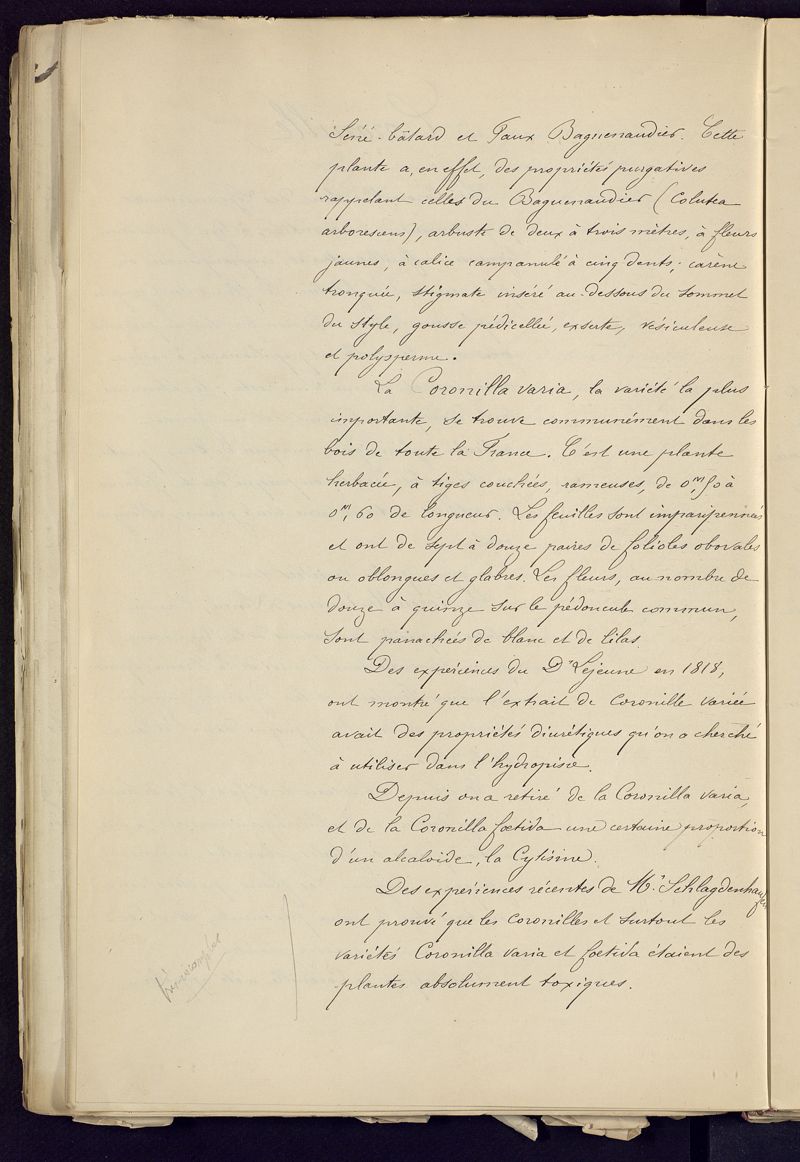 Séné-bâtard et Faux Baguenaudier. Cette
plante a, en effet, des propriétés purgatives
rappelant celles du Baguenaudier (Colutea
arborescens), arbuste de deux à trois mètres, à fleurs
jaunes, à calice campanulé à cinq dents, carène
tronquée, stigmate inséré au-dessous du sommet
du style, gousse pédicellée, exserte, vésiculeuse
et polysperme.
La Coronilla varia, la variété la plus
importante, se trouve communément dans les
bois de toute la France. C'est une plante
herbacée, à tiges couchées, rameuses, de 0m,50 à
0m,60 de longueur. Les feuilles sont imparipennées
et ont de sept à douze paires de folioles obovales
ou oblongues et glabres. Les fleurs, au nombre de
douze à quinze sur le pédoncule commun,
sont panachées de blanc et de lilas.
Des expériences du Dr Lejeune en 1818,
ont montré que l'extrait de Coronille variée
avait des propriétés diurétiques qu'on a cherché
à utiliser dans l'hydropisie.
Depuis on a retiré de la Coronilla varia,
et de la Coronilla fœtida une certaine proportion
d'un alcaloïde, la Cytisine.
Des expériences récentes de Mr Schlagdenhauffen
ont prouvé que les Coronilles et surtout les
variétés Coronilla varia et fœtida étaient des
plantes absolument toxiques.